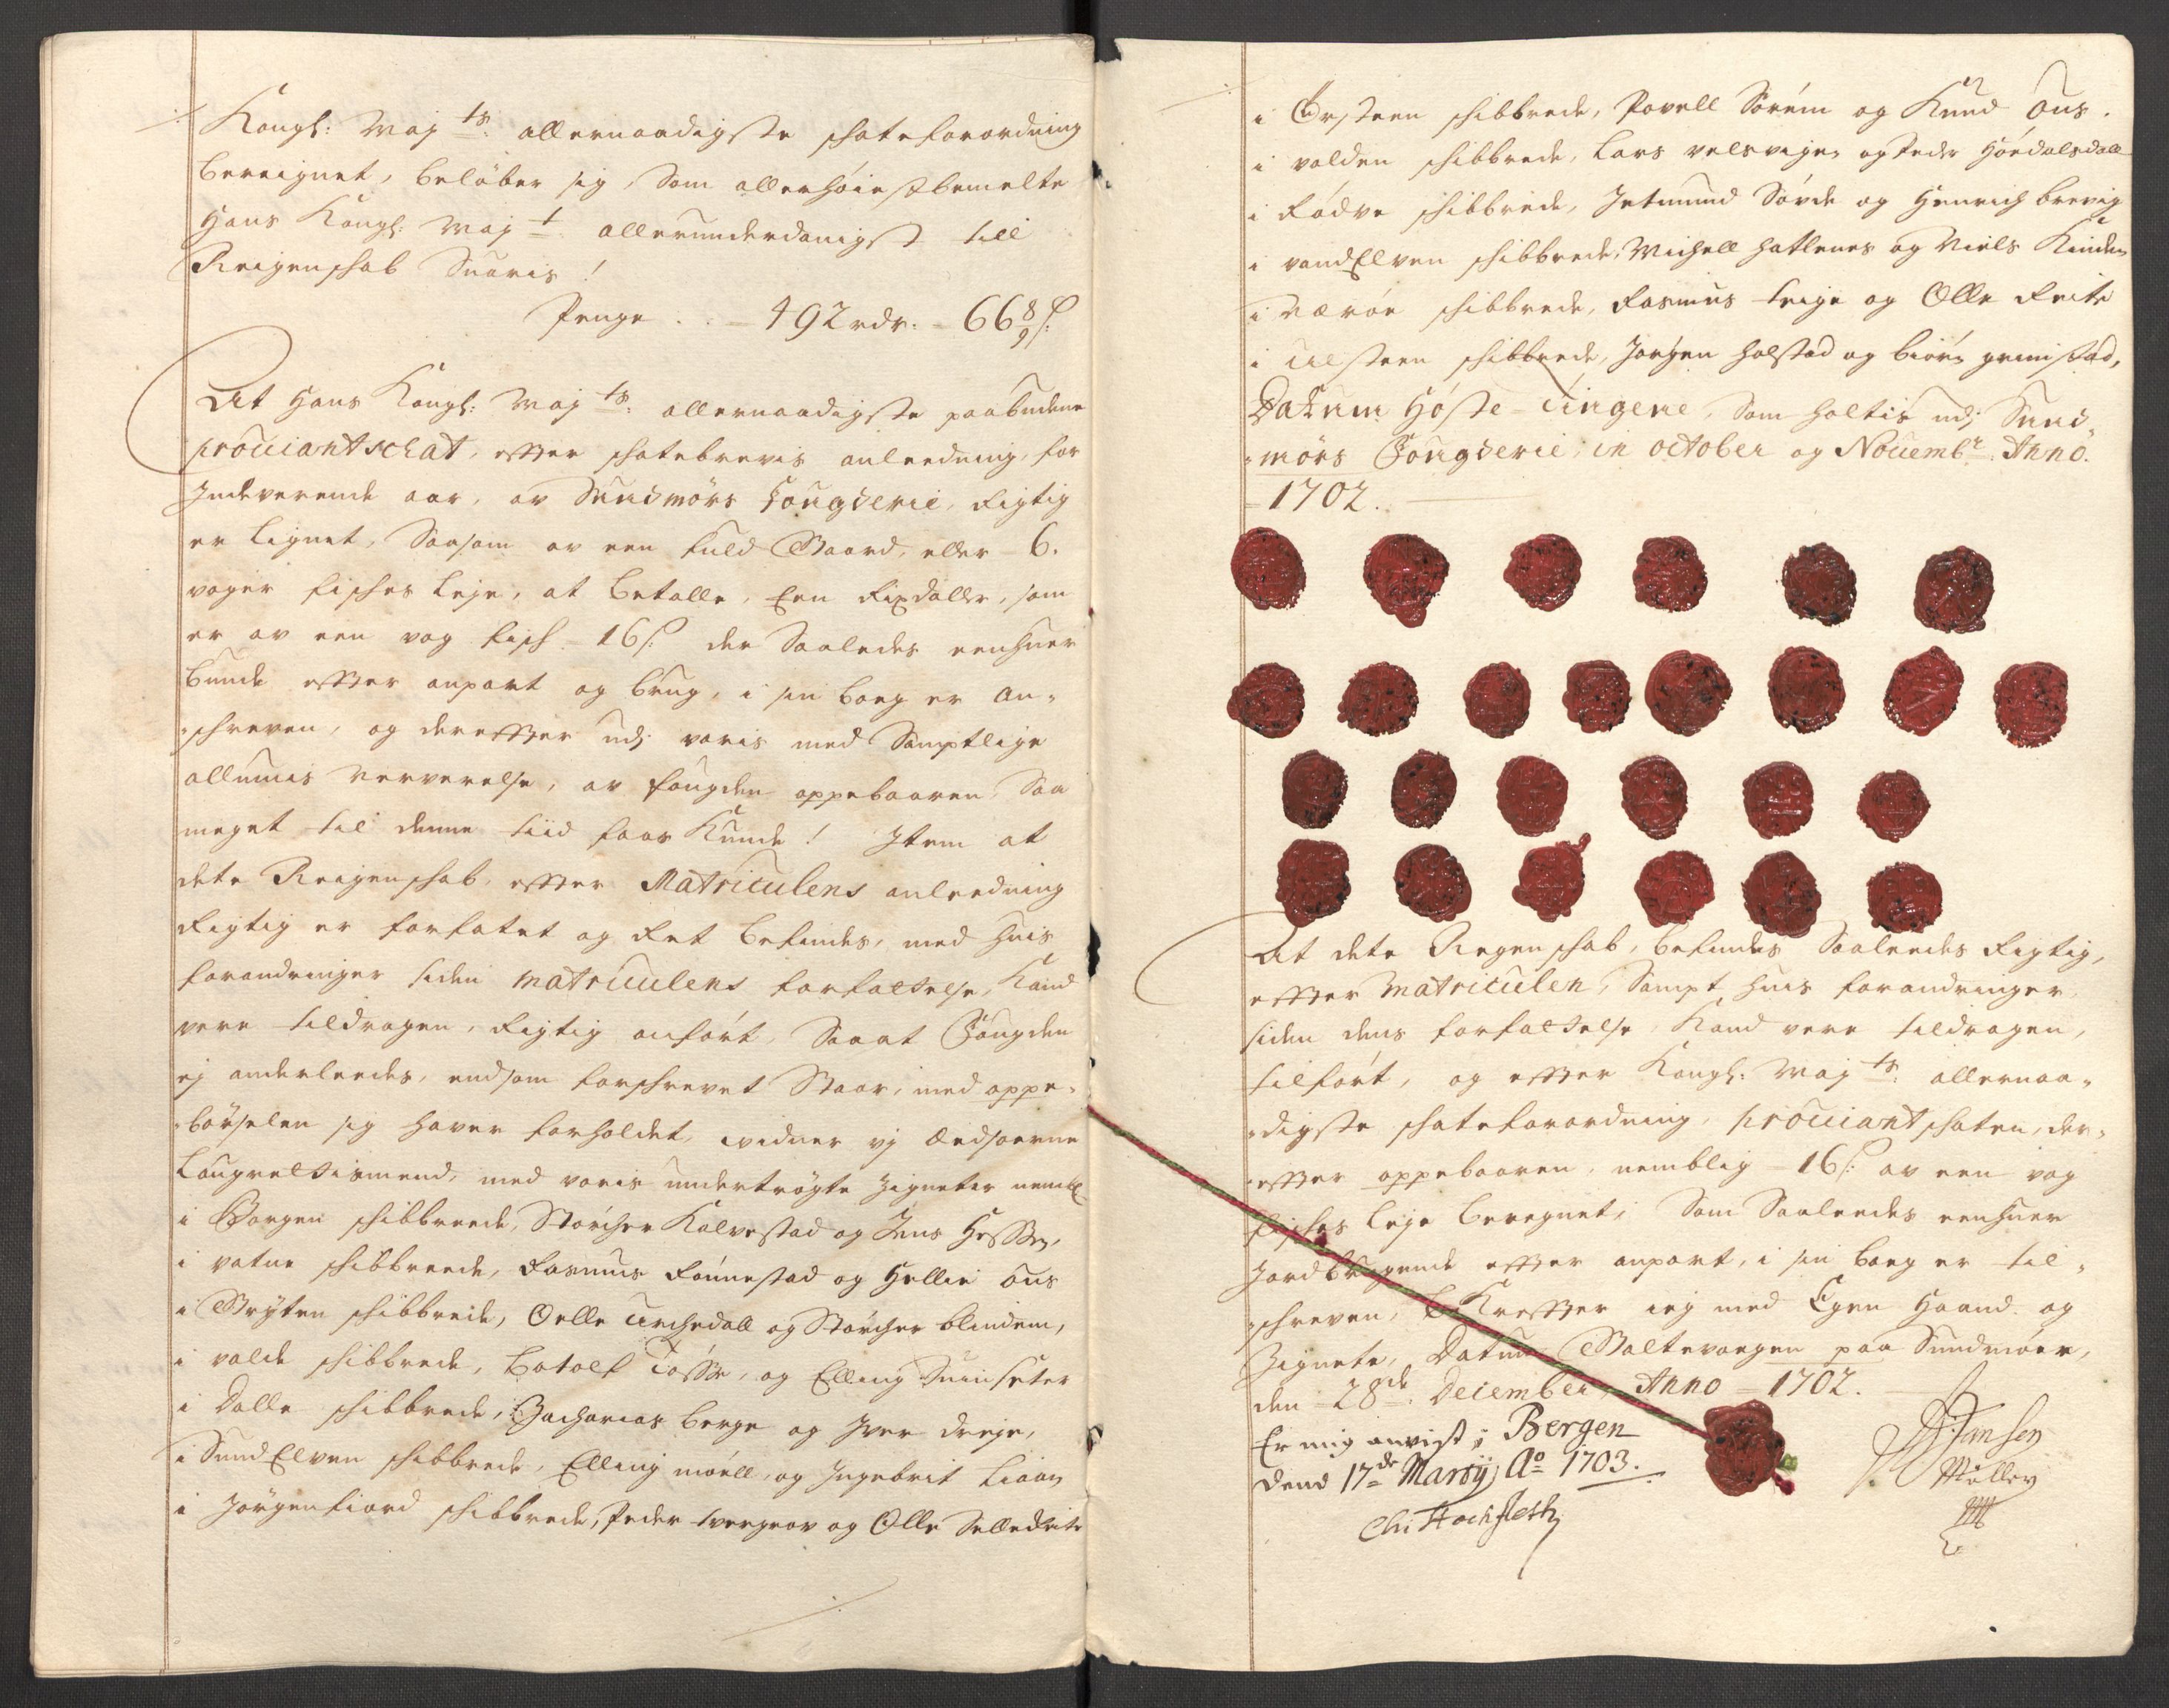 Kongl: Maj ts: allernaadigste schateforordning
bereignet, beløber sig, Som allerhøiestbemelte
Hans Kongl: Maj t allerunderdanigst till
Reigenschab Suaris!
Penge . . – 492 rdr: – 66 8/9 ß:
At Hans Kongl: Maj ts: allernaadigste paabudene
prouiantschat, effter schatebrevis anleedning, for
Indeverende aar, av Sundmørs Fougderie, Rigtig
er Lignet, Saasom av een fuld Gaard, eller 6.
voger fisches Leje, at betalle, Een Rixdaller, som
er av een vog fisch 16 ß: der Saaledes eenhuer
bunde effter anpart og brug, i sin boeg er an=
=schreven, og dereffter udj voris med Samptlige
allumis Nerverelse, av fougden oppebaaren, Saa
meget til denne tiid faaes Kunde! Item at
dete Reigenschab, effter Matriculens anleedning
Rigtig er forfatet og Ret befindes, med huis
forandringer siden matriculens forfattelse, Kand
vere tildragen, Rigtig anført, Saa at Fougden
ej anderleedes, end som forschrevet Staar, med oppe=
=børselen sig haver forholdet, widner vj Ædsoerne
Laugrettismend, med voris undertrøgte Zigneter nembl
i Borgen schibbreede, Størcher Kalvestad og Jens Hessen,
i vatne schibbreede, Rasmus Rønnestad og Hellie Aus
i Gryten schibbrede, Oelle Urchedall og Størcher blindem,
i valde schibbrede, Botolf Tøsse, og Elling Suinseter
i Dalle schibbrede, Zacharias berge og Iver dreje,
i SundElven schibbrede, Elling møell, og Ingebrit Liaan
i Jørgenfiord schibbrede, Peder tvergrov og Olle Sellereite
i Ørsteen schibbrede, Povell Sørém og Knud Aus.
i valden schibbrede, Lars velsvigen og Peder Hørdalsdall
i Rødve schibbrede, Jetmund Sørde og Henrich brevig
i vandElven schibbrede, Michell hatlenes og Niels Kinden
i Nærøe schibbrede, Rasmus teige og Olle Reite
i Ulsteen schibbrede, Jørgen halstad og biørn grimstad,
Datum Høste-tingene, Som holtis udj Sund=
=mørs Fougderie, in october og Nouembr: Anno.
– 1702.
At dete Regenschab, befindes Saaleedes Rigtig,
effter Matriculen, Sampt huis forandringer
siden dens forfattelse Kand vere tildragen,
tilført, og effter Kongl: Maj ts: allernaa=
=digste schateforordning, prouiantschaten, der=
=effter oppebaaren, nemblig – 16 ß: av een vog
fisches Leje beregnet, Som Saaleedes eenhuer
Jordbrugende effter anpart, i sin boeg er til=
=schreven, bekreffter ieg med Egen Haand og
Zignete, Datum Galtevaagen paa Sundmøer,
den – 28de: December Anno – 1702.
Er mig anvist i Bergen
dend 17de Martij Ao 1703.
Chr Hochfleth
Jansen
Møller